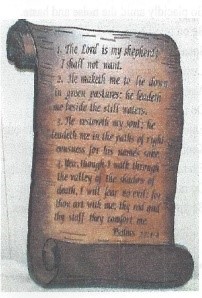 1. The Lord is my shepherd;
I shall not want.
2. He maketh me to lie down
in green pastures: he leadeth
me beside the still waters.
3. He restoreth my soul: he
leadeth me in the paths of right
eousness for his name's sake
4. Yea, though I walk through
the valley of the shadow of
death, I will fear no evil: for
thou art with me; thy rod and
thy staff they comfort me.
Psalms